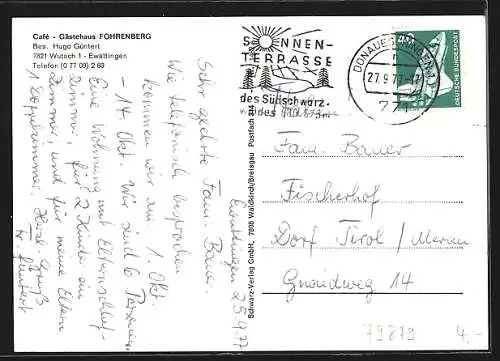 Café - Gästehaus FOHRENBERG
Bes. Hugo Güntert
7821 Wutach 1 - Ewattingen
Telefon (0 77 09) 2 69
Ewattingen 25.9.77
Sehr geehrte Fam. Bauer.
Wie telefonisch besprochen
kommen wir am 1. Okt.
- 14. Okt. Wir sind 6 Personen.
Eine Wohnung mit Elternschlaf-
zimmer, für 2 Kinder ein
Zimmer, und für meine Eltern
1 Doppelzimmer. Herzl. Gruß
Fr. Güntert
Schwarz-Verlag GmbH., 7808 Waldkirch/Breisgau Postfach
SONNEN-
TERRASSE
des Südschwarz-
waldes
DONAUESCHINGEN 1
27.9.77-17
771
DEUTSCHE BUNDESPOST
Fam. Bauer
Fischerhof
Dorf Tirol / Meran
14
79879
4.-